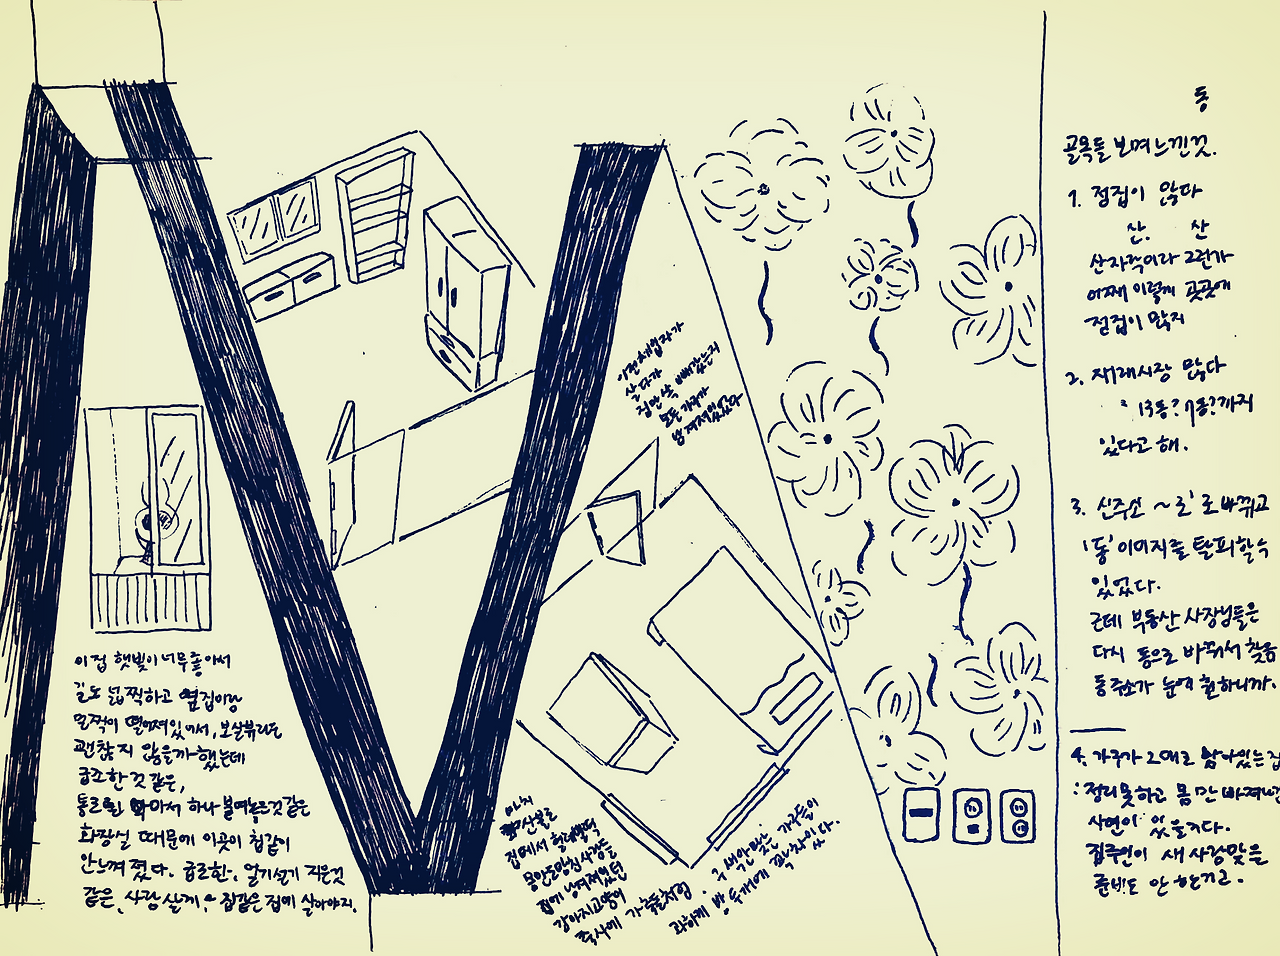 이 집 햇빛이 너무 좋아서
길도 넓찍하고 옆집이랑
멀찍이 떨어져있어서, 보살뷰라도
괜찮지 않을까 했는데
급조한 것 같은,
통로를 막아서 하나 붙여놓은것같은
화장실 때문에 이곳이 집같이
안느껴졌다. 급르한, 얼기설기 지은것
같은, 사람 살게, 집같은 집에 살아야지.
이전 세입자가
살다가
집만 쏙 빼갔는지
모든 가구가
남겨져있었다
마치
산불로
집에서 헐레벌떡
몸만 도망친 사람들
집에 남겨져있던
강아지 고양이
축사에 가축들처럼. 구색 안맞는 가구들이
과하게 방 두개에 꽉차있다.
동
골목들 보며 느낀것.
1. 점집이 많다
산. 산
산자락이라 그런가
어째 이렇게 곳곳에
점집이 많지
2. 재래시장 많다
13동? 7동?까지
있다고 해.
3. 신주소 ~로'로 바뀌고
'동'이미지를 탈피할 수
있었다.
근데 부동산 사장님들은
다시 동으로 바꿔서 찾음
동주소가 눈에 훤하니까.
4. 가구가 그대로 남아있는 집
: 정리못하고 몸만 빠져나간
사연이 있을거다.
집주인이 새 사람맞을
준비도 안 한거고.